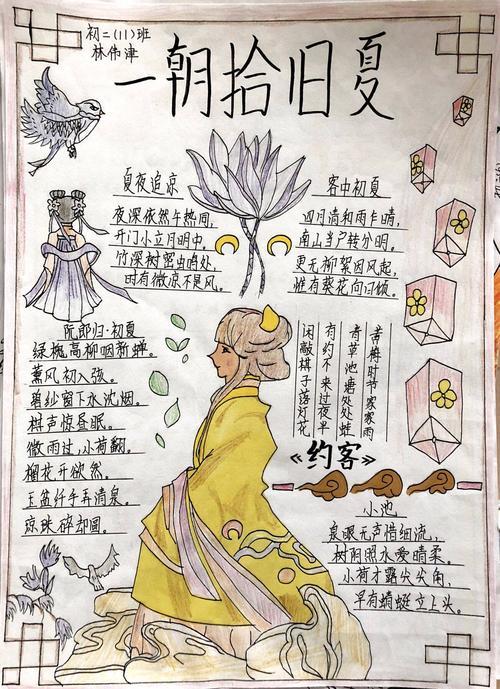 初二(11)班
林伟津
一朝拾旧夏
夏夜追凉
夜深依然午热同,
开门小立月明中。
竹深树密虫鸣处,
时有微凉不是风。
客中初夏
四月清和雨乍晴,
南山当户转分明。
更无柳絮因风起,
惟有葵花向日倾。
阮郎归·初夏
绿槐高柳咽新蝉。
薰风初入弦。
碧纱窗下水沈烟。
棋声惊昼眠。
微雨过,小荷翻。
榴花开欲然。
玉盆纤手弄清泉。
琼珠碎却圆。
《约客》
黄梅时节家家雨
青草池塘处处蛙
有约不来过夜半
闲敲棋子落灯花
小池
泉眼无声惜细流,
树阴照水爱晴柔。
小荷才露尖尖角,
早有蜻蜓立上头。